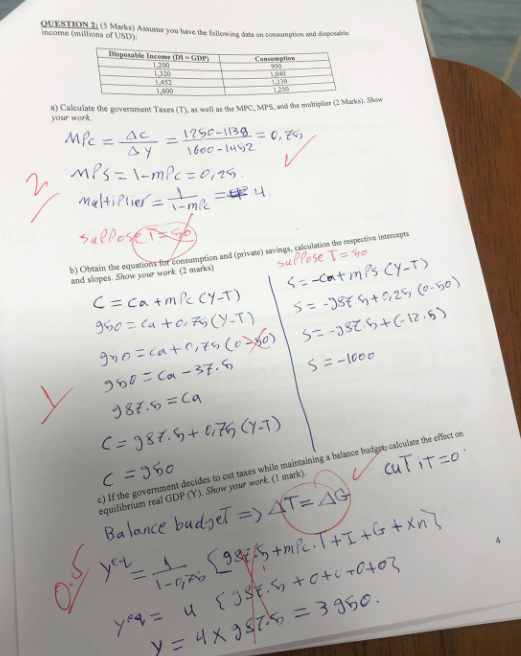 QUESTION 2: (5 Marks) Assume you have the following data on consumption and disposable
income (millions of USD):
Disposable Income (DI = GDP) Consumption
1,200 950
1,320 1,040
1,452 1,139
1,600 1,250
a) Calculate the government Taxes (T), as well as the MPC, MPS, and the multiplier (2 Marks). Show
your work.
MPC = ΔC / ΔY = 1250-1139 / 1600-1452 = 0,75
MPS = 1-MPC = 0,25.
2
Multiplier = 1 / 1-MPC = 4.
Suppose T = 50
b) Obtain the equations for consumption and (private) savings, calculation the respective intercepts
and slopes. Show your work. (2 marks)
Suppose T = 50
C = Ca + MPC (Y-T)
950 = Ca + 0,75 (Y-T)
950 = Ca + 0,75 (0-50)
950 = Ca - 37.5
987.5 = Ca
C = 987.5 + 0,75 (Y-T)
C = 950
S = -Ca + MPS (Y-T)
S = -987.5 + 0,25 (0-50)
S = -987.5 + (-12.5)
S = -1000
c) If the government decides to cut taxes while maintaining a balance budget, calculate the effect on
equilibrium real GDP (Y). Show your work. (1 mark).
cut : T=0
Balance budget => ΔT = ΔG
0.5
Yeq = 1 / 1-0,75 { 987.5 + MPC.T + I + G + Xn }
Yeq = 4 { 987.5 + 0 + 0 + 0 + 0 }
Y = 4 × 987.5 = 3950.
4